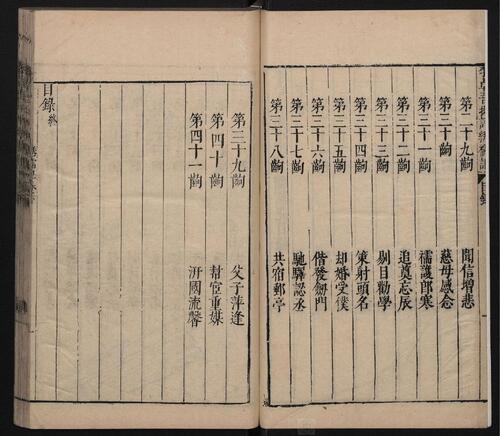 目錄
第二十九齣 聞信增悲
第三十齣 慈母感念
第三十一齣 襦護郎寒
第三十二齣 追奠忘辰
第三十三齣 剔目勸學
第三十四齣 策射頭名
第三十五齣 却婚受僕
第三十六齣 偕發劍門
第三十七齣 馳驛認丞
第三十八齣 共宿郵亭
第三十九齣 父子萍逢
第四十齣 幫宦重媒
第四十一齣 汧國流馨
目錄終